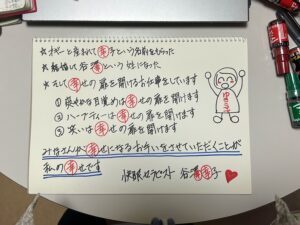 ☆オギャーと産まれて幸子という名前をもらった
☆結婚して谷澤幸という姓になった
☆そして幸せの扉を開けるお仕事をしています
①爽やかな目覚めは幸せの扉を開けます
②ハーナティーは幸せの扉を開けます
③笑いは幸せの扉を開けます
みなさんが幸せになるお手伝いをさせていただくことが
私の幸せです
快眠セラピスト 谷澤幸子